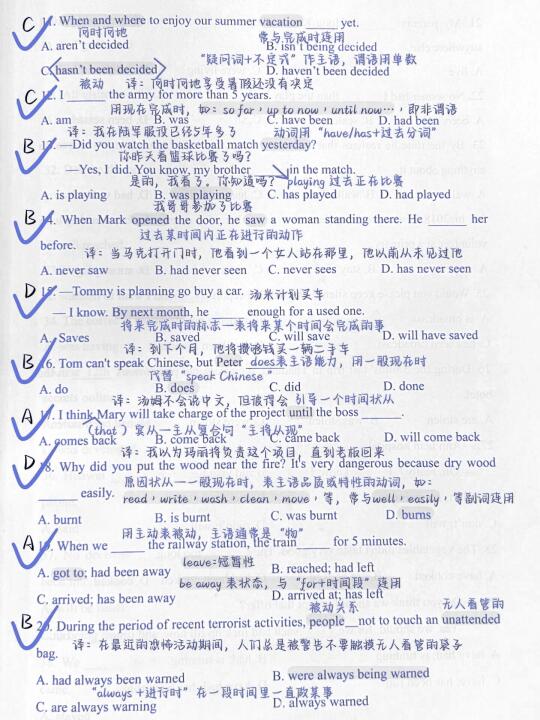 C 11. When and where to enjoy our summer vacation ______ yet.
何时何地 常与完成时连用
A. aren't decided B. isn't being decided
"疑问词+不定式"作主语，谓语用单数
C. hasn't been decided D. haven't been decided
被动 译：何时何地享受暑假还没有决定
C 12. I ______ the army for more than 5 years.
用现在完成时，如：so far，up to now，until now…，即非谓语
A. am B. was C. have been D. had been
译：我在陆军服役已经5年多了 动词用"have/has+过去分词"
B 13. —Did you watch the basketball match yesterday?
你昨天看篮球比赛了吗？
—Yes, I did. You know, my brother ______ in the match.
是的，我看了。你知道吗？ playing 过去正在比赛
A. is playing B. was playing C. has played D. had played
我哥哥参加了比赛
B 14. When Mark opened the door, he saw a woman standing there. He ______ her
before. 过去某时间内正在进行的动作
译：当马克打开门时，他看到一个女人站在那里，他以前从未见过他
A. never saw B. had never seen C. never sees D. has never seen
D 15. —Tommy is planning go buy a car. 汤米计划买车
—I know. By next month, he ______ enough for a used one.
将来完成时的标志—表将来某个时间会完成的事
A. Saves B. saved C. will save D. will have saved
译：到下个月，他将攒够钱买一辆二手车
B 16. Tom can't speak Chinese, but Peter does 表主语能力，用一般现在时
代替"speak Chinese"
A. do B. does C. did D. done
译：汤姆不会说中文，但彼得会 引导一个时间状从
A 17. I think Mary will take charge of the project until the boss ______.
(that) 宾从—主从复合句"主将从现"
A. comes back B. come back C. came back D. will come back
译：我以为玛丽将负责这个项目，直到老板回来
D 18. Why did you put the wood near the fire? It's very dangerous because dry wood
原因状从—一般现在时，表主语品质或特性的动词，如：
______ easily. read，write，wash，clean，move，等，常与well，easily，等副词连用
A. burnt B. is burnt C. was burnt D. burns
用主动表被动，主语通常是"物"
A 19. When we ______ the railway station, the train ______ for 5 minutes.
leave=短暂性
A. got to; had been away B. reached; had left
be away 表状态，与"for+时间段"连用
C. arrived; has been away D. arrived at; has left
被动关系 无人看管的
B 20. During the period of recent terrorist activities, people __not to touch an unattended
译：在最近的恐怖活动期间，人们总是被警告不要触摸无人看管的袋子
bag.
A. had always been warned B. were always being warned
"always +进行时"在一段时间里一直做某事
C. are always warning D. always warned